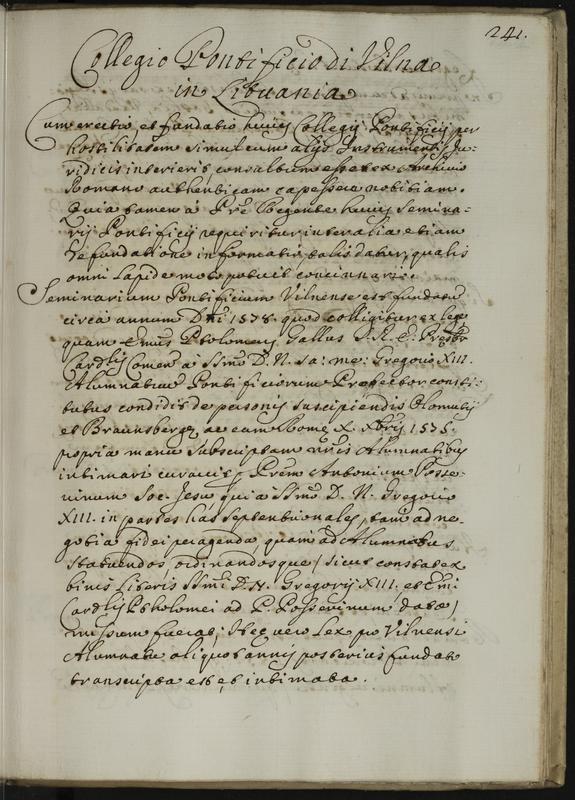 241.
Collegio Pontificio di Vilna
in Lituania
Cum erectio, et fundatio huius Collegij Pontificij per
hostilitatem simul cum alijs Instrumentis Ju=
ridicis interierit consultum esset ex Archivio
Romano authenticam capessere notitiam.
Quia tamen à Pre Regente huius Semina=
rij Pontificij requiritur inter alia etiam
de fundatione informatio, talis datur, qualis
omni lapide moto potuit concinnari.
Seminarium Pontificium Vilnense est fundatum
circa annum Dni 1578. quod colligitur ex lege
quam Emus Ptholomeus Gallus S. R. E. Presbr
Cardlis Comen à Ssmo D. N. sa: me: Gregorio XIII.
Alumnatuum Pontificiorum Protector consti=
tutus condidit de personis suscipiendis Olomutij
et Braunsbergæ ac eam Romæ X. Xbris 1578.
propria manu subscriptam nris Alumnatibus
intimari curavit per Prem Antonium Posse=
vinum Soc. Jesu qui à Ssmo D. N. Gregorio
XIII. in partes has septentrionales, tam ad ne=
gotia fidei peragenda, quam ad Alumnatus
statuendos ordinandosque / sicut constat ex
binis literis Ssmi D. N. Gregorij XIII, et Emi
Cardlis Ptholomei ad P. Possevinum datis /
missum fuerat; Hæc vero Lex pro Vilnensi
Alumnatu aliquot annis posterius fundato
transcripta est, et intimata.